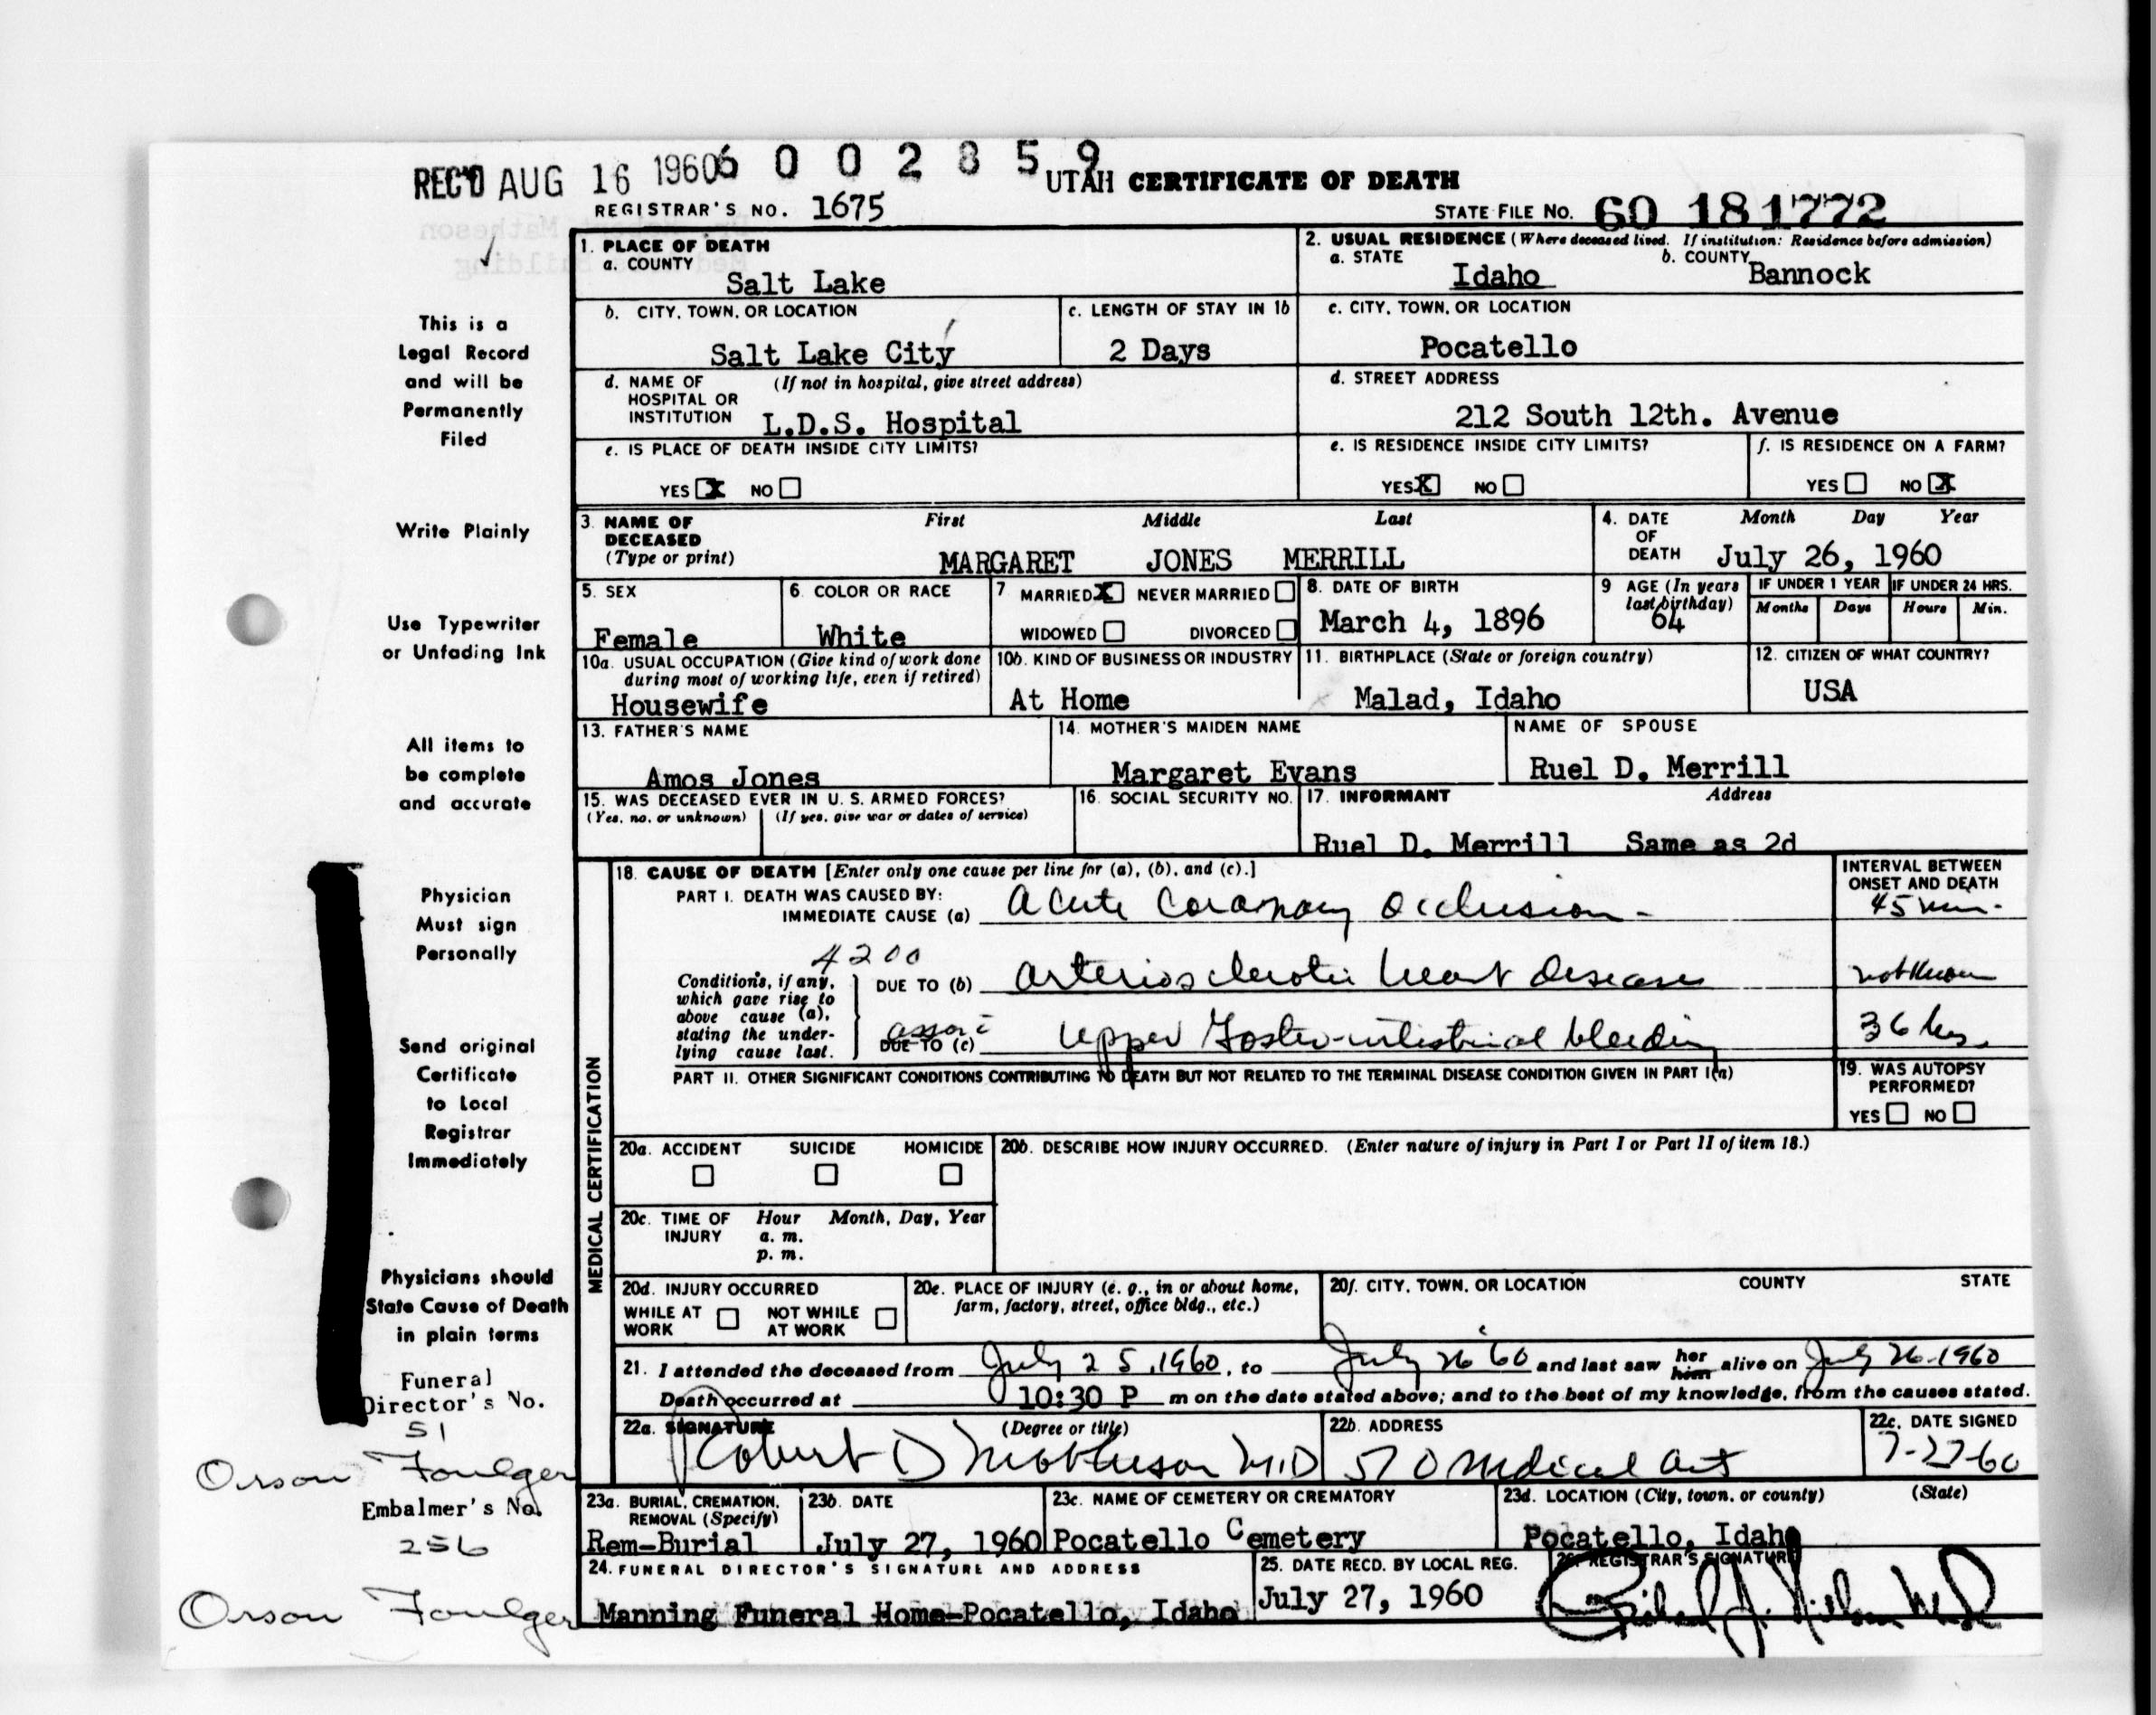 REC'D AUG 16 1960
6 0 0 2 8 5 9
UTAH CERTIFICATE OF DEATH
REGISTRAR'S NO. 1675
STATE FILE NO. 60 181772
This is a
Legal Record
and will be
Permanently
Filed
Write Plainly
Use Typewriter
or Unfading Ink
All items to
be complete
and accurate
Physician
Must sign
Personally
Send original
Certificate
to Local
Registrar
Immediately
Physicians should
State Cause of Death
in plain terms
Funeral
Director's No.
51
Orson Foulger
Embalmer's No.
256
Orson Foulger
1. PLACE OF DEATH
a. COUNTY
Salt Lake
2. USUAL RESIDENCE (Where deceased lived. If institution: Residence before admission)
a. STATE
Idaho
b. COUNTY
Bannock
b. CITY, TOWN, OR LOCATION
Salt Lake City
c. LENGTH OF STAY IN 1b
2 Days
c. CITY, TOWN, OR LOCATION
Pocatello
d. NAME OF HOSPITAL OR INSTITUTION (If not in hospital, give street address)
L.D.S. Hospital
d. STREET ADDRESS
212 South 12th. Avenue
e. IS PLACE OF DEATH INSIDE CITY LIMITS?
YES X NO
e. IS RESIDENCE INSIDE CITY LIMITS?
YES X NO
f. IS RESIDENCE ON A FARM?
YES NO X
3. NAME OF DECEASED (Type or print)
First Middle Last
MARGARET JONES MERRILL
4. DATE OF DEATH
Month Day Year
July 26, 1960
5. SEX
Female
6. COLOR OR RACE
White
7 MARRIED X NEVER MARRIED
WIDOWED DIVORCED
8. DATE OF BIRTH
March 4, 1896
9 AGE (In years last birthday)
64
IF UNDER 1 YEAR
Months Days
IF UNDER 24 HRS.
Hours Min.
10a. USUAL OCCUPATION (Give kind of work done during most of working life, even if retired)
Housewife
10b. KIND OF BUSINESS OR INDUSTRY
At Home
11. BIRTHPLACE (State or foreign country)
Malad, Idaho
12. CITIZEN OF WHAT COUNTRY?
USA
13. FATHER'S NAME
Amos Jones
14. MOTHER'S MAIDEN NAME
Margaret Evans
NAME OF SPOUSE
Ruel D. Merrill
15. WAS DECEASED EVER IN U. S. ARMED FORCES?
(Yes, no, or unknown) (If yes, give war or dates of service)
16. SOCIAL SECURITY NO.
17. INFORMANT Address
Ruel D. Merrill Same as 2d
MEDICAL CERTIFICATION
18. CAUSE OF DEATH [Enter only one cause per line for (a), (b), and (c).]
PART I. DEATH WAS CAUSED BY:
IMMEDIATE CAUSE (a) Acute Coronary Occlusion
INTERVAL BETWEEN ONSET AND DEATH
45 min.
4200
Conditions, if any, which gave rise to above cause (a), stating the underlying cause last.
DUE TO (b) Arteriosclerotic heart disease
not known
DUE TO (c) Upper Gastro-intestinal bleeding
36 hrs.
PART II. OTHER SIGNIFICANT CONDITIONS CONTRIBUTING TO DEATH BUT NOT RELATED TO THE TERMINAL DISEASE CONDITION GIVEN IN PART I(a)
19. WAS AUTOPSY PERFORMED?
YES NO
20a. ACCIDENT SUICIDE HOMICIDE
20b. DESCRIBE HOW INJURY OCCURRED. (Enter nature of injury in Part I or Part II of item 18.)
20c. TIME OF INJURY
Hour Month, Day, Year
a. m.
p. m.
20d. INJURY OCCURRED
WHILE AT WORK NOT WHILE AT WORK
20e. PLACE OF INJURY (e. g., in or about home, farm, factory, street, office bldg., etc.)
20f. CITY, TOWN, OR LOCATION COUNTY STATE
21. I attended the deceased from July 25, 1960, to July 26 '60 and last saw her him alive on July 26-1960
Death occurred at 10:30 P m on the date stated above; and to the best of my knowledge, from the causes stated.
22a. SIGNATURE (Degree or title)
Robert D Matheson M.D
22b. ADDRESS
570 Medical Art
22c. DATE SIGNED
7-27-60
23a. BURIAL, CREMATION, REMOVAL (Specify)
Rem-Burial
23b. DATE
July 27, 1960
23c. NAME OF CEMETERY OR CREMATORY
Pocatello Cemetery
23d. LOCATION (City, town, or county) (State)
Pocatello, Idaho
24. FUNERAL DIRECTOR'S SIGNATURE AND ADDRESS
Manning Funeral Home-Pocatello, Idaho
25. DATE RECD. BY LOCAL REG.
July 27, 1960
26. REGISTRAR'S SIGNATURE